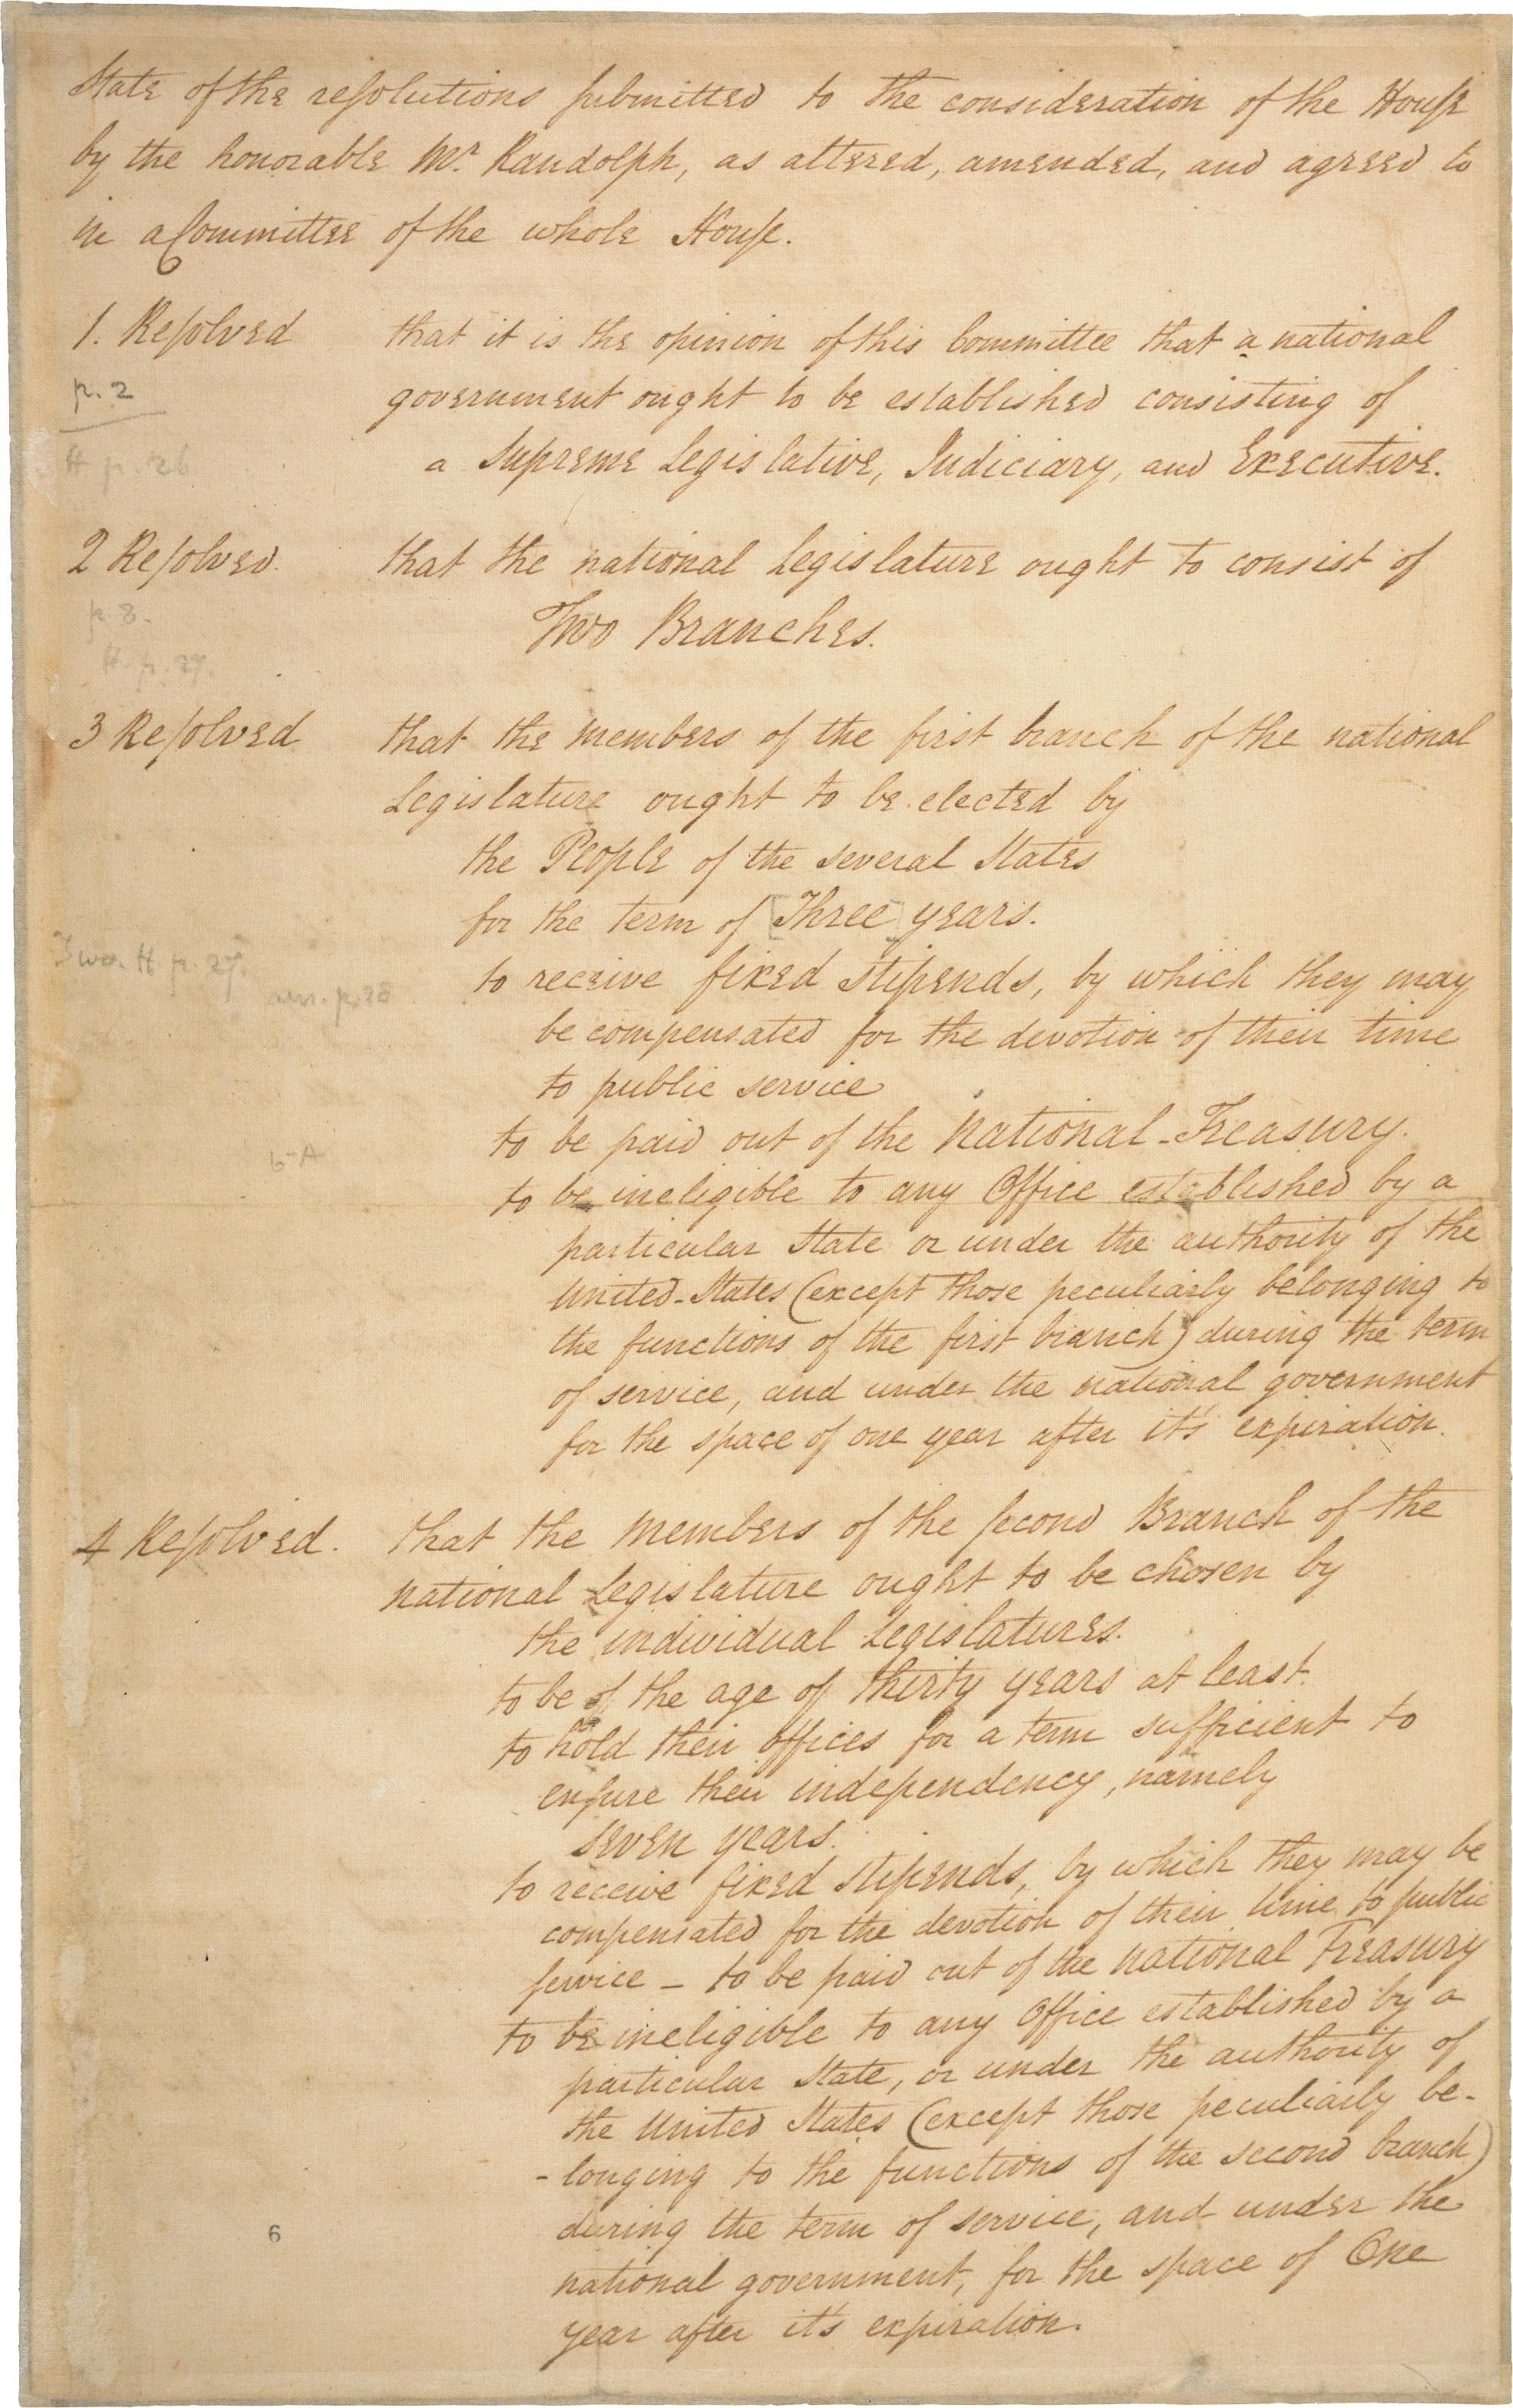 State of the resolutions submitted to the consideration of the House
by the honorable Mr. Randolph, as altered, amended, and agreed to
in a Committee of the whole House.
1. Resolved that it is the opinion of this Committee that a national
p. 2
government ought to be established consisting of
H p. 26
a Supreme Legislative, Judiciary, and Executive.
2 Resolved. that the national Legislature ought to consist of
p. 8.
Two Branches.
H. p. 27.
3 Resolved that the members of the first branch of the national
Legislature ought to be elected by
the People of the several States
for the term of [Three] years.
Two. H. p. 27.
to receive fixed stipends, by which they may
be compensated for the devotion of their time
to public service
to be paid out of the National-Treasury.
to be ineligible to any Office established by a
particular State or under the authority of the
United-States (except those peculiarly belonging to
the functions of the first branch) during the term
of service, and under the national government
for the space of one year after it's expiration.
4 Resolved. that the Members of the second Branch of the
national Legislature ought to be chosen by
the individual Legislatures.
to be of the age of thirty years at least.
to hold their offices for a term sufficient to
ensure their independency, namely
seven years.
to receive fixed stipends, by which they may be
compensated for the devotion of their time to public
service - to be paid out of the National Treasury
to be ineligible to any Office established by a
particular State, or under the authority of
the United States (except those peculiarly be-
-longing to the functions of the second branch)
during the term of service, and under the
6
national government, for the space of One
year after it's expiration.